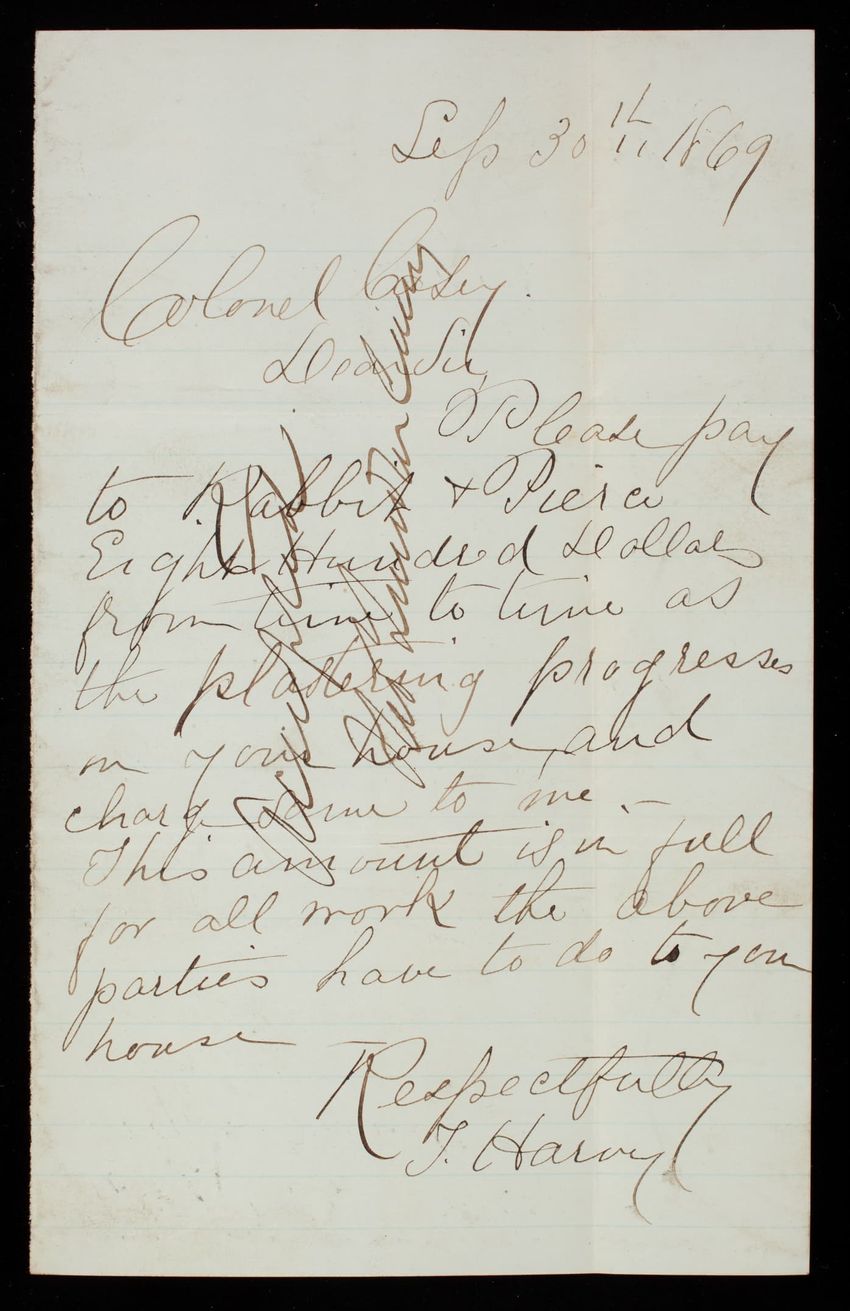 Sep 30th 1869
Colonel Casey.
Dear Sir,
Please pay
to Rabbit & Pierce
Eight Hundred Dollars
from time to time as
the plastering progresses
on your house, and
charg same to me. –
This amount is in full
for all work the above
parties have to do to your
house –
Respectfully
T. Harvy
Casey